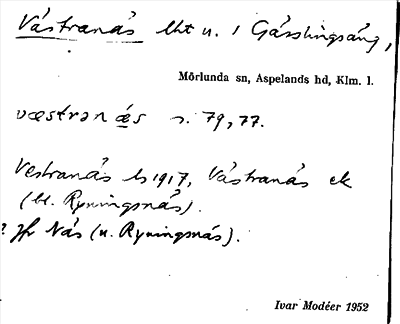 Västranäs lht u. 1 Gässlingsäng,
Mörlunda sn, Aspelands hd, Klm. l.
væstranæs s. 79, 77.
Vestranäs ls 1917, Västranäs ek
(bl. Ryningsnäs).
? Jfr Näs (u. Ryningsnäs).
Ivar Modéer 1952